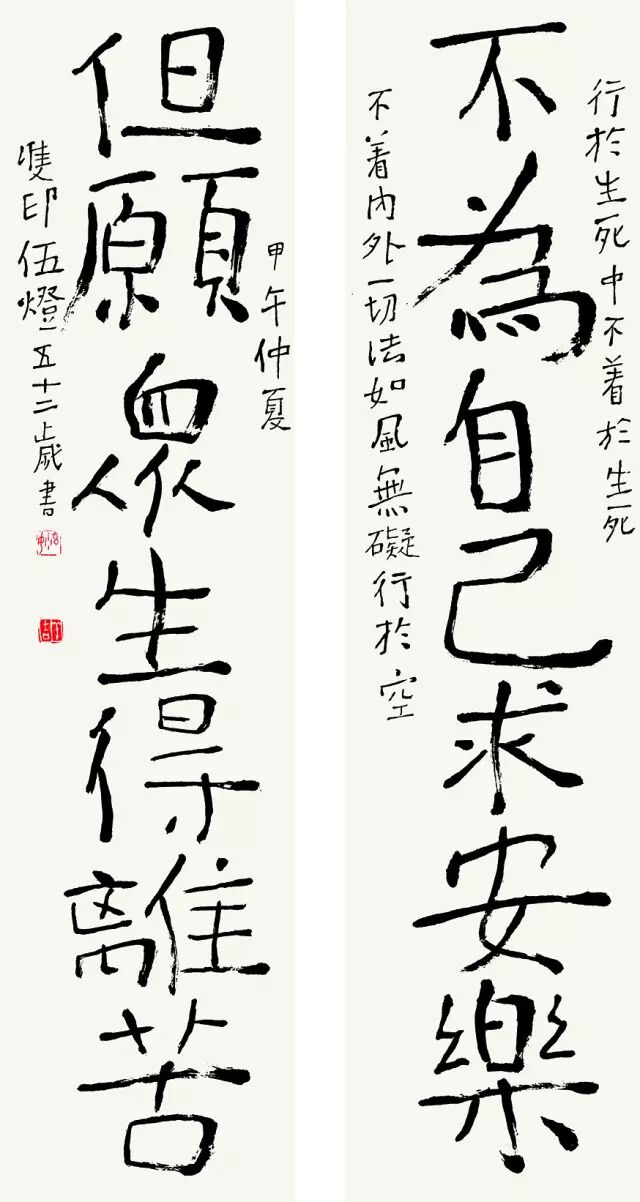 行於生死中不着於生死
不為自己求安樂
不着內外一切法如風無礙行於空
甲午仲夏
但願眾生得離苦
雙印伍燈一五十二歲書